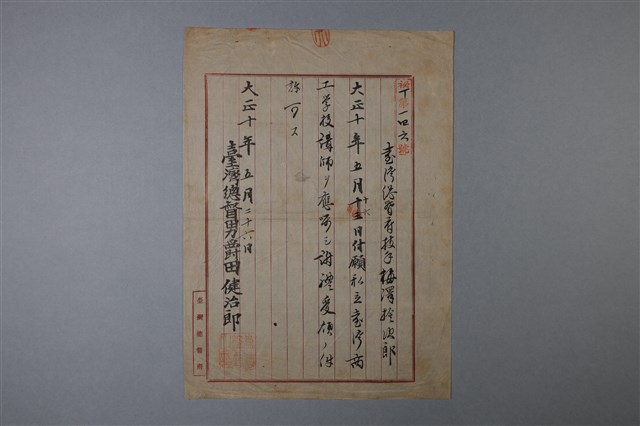 秘丁第一四六號
臺湾総督府技手梅澤捨次郎
大正十年五月十六日付願私立臺湾商
工学校講師ノ應嘱シ謝禮受領ノ件
許可ス
大正十年五月二十六日
臺灣總督男爵田健治郎
臺灣總督府